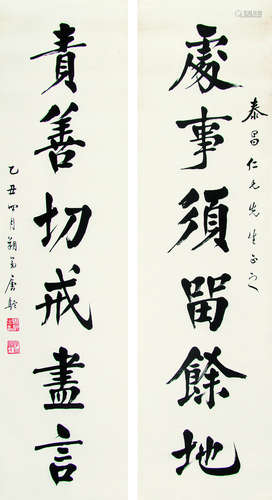 泰昌仁兄先生正之
處事須留餘地
責善切戒盡言
乙丑四月朔